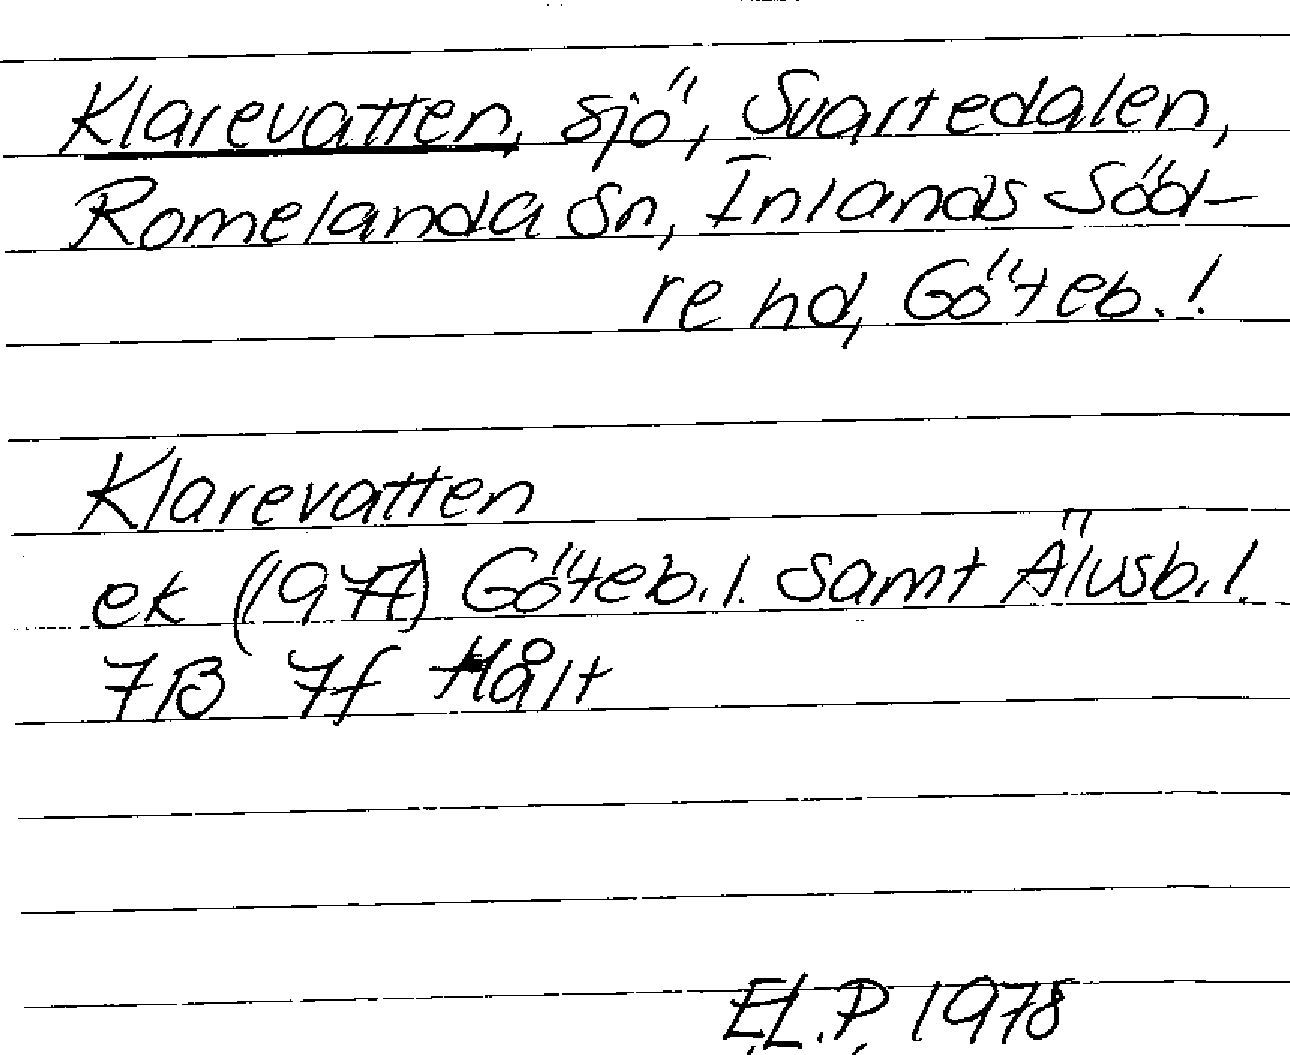 Klarevatten, sjö, Svartedalen,
Romelanda sn, Inlands Söd-
re hd, Göteb. l
Klarevatten
ek (1977) Göteb. l. samt Älvsb. l.
7B 7f Hålt
E.L.P. 1978